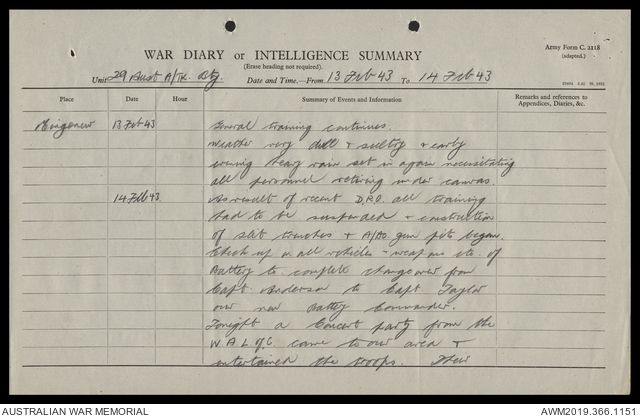 Army Form C. 2118
(adapted.)
WAR DIARY or INTELLIGENCE SUMMARY
(Erase heading not required).
Unit 29 Aust A/Tk. Bty. Date and Time.—From 13 Feb 43 To 14 Feb 43
Place Date Hour Summary of Events and Information Remarks and references to Appendices, Diaries, &c.
Mingenew 13 Feb 43 General training continues.
Weather very dull & sultry & early
evening heavy rain set in again necessitating
all personnel retiring under canvas.
14 Feb 43 As result of recent D.R.O. all training
had to be suspended & construction
of slit trenches & A/Tk. gun pits began.
Check up on all vehicles - weapons etc. of
Battery to complete changeover from
Capt. Anderson to Capt Taylor
our new Battery Commander.
Tonight a Concert party from the
W.A. L of C came to our area &
entertained the troops. Their
AUSTRALIAN WAR MEMORIAL
AWM2019.366.1151